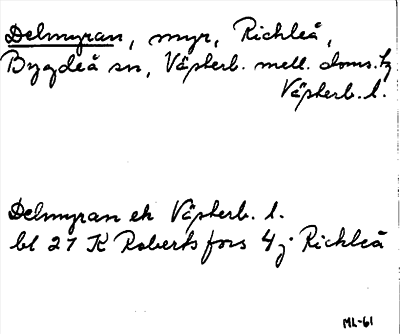 Delmyran, myr, Richleå,
Bygdeå sn, Västerb. mell. doms. tg
Västerb. l.
Delmyran ek Västerb. l.
bl 27 K Robertsfors 4 j Richleå
ML-61